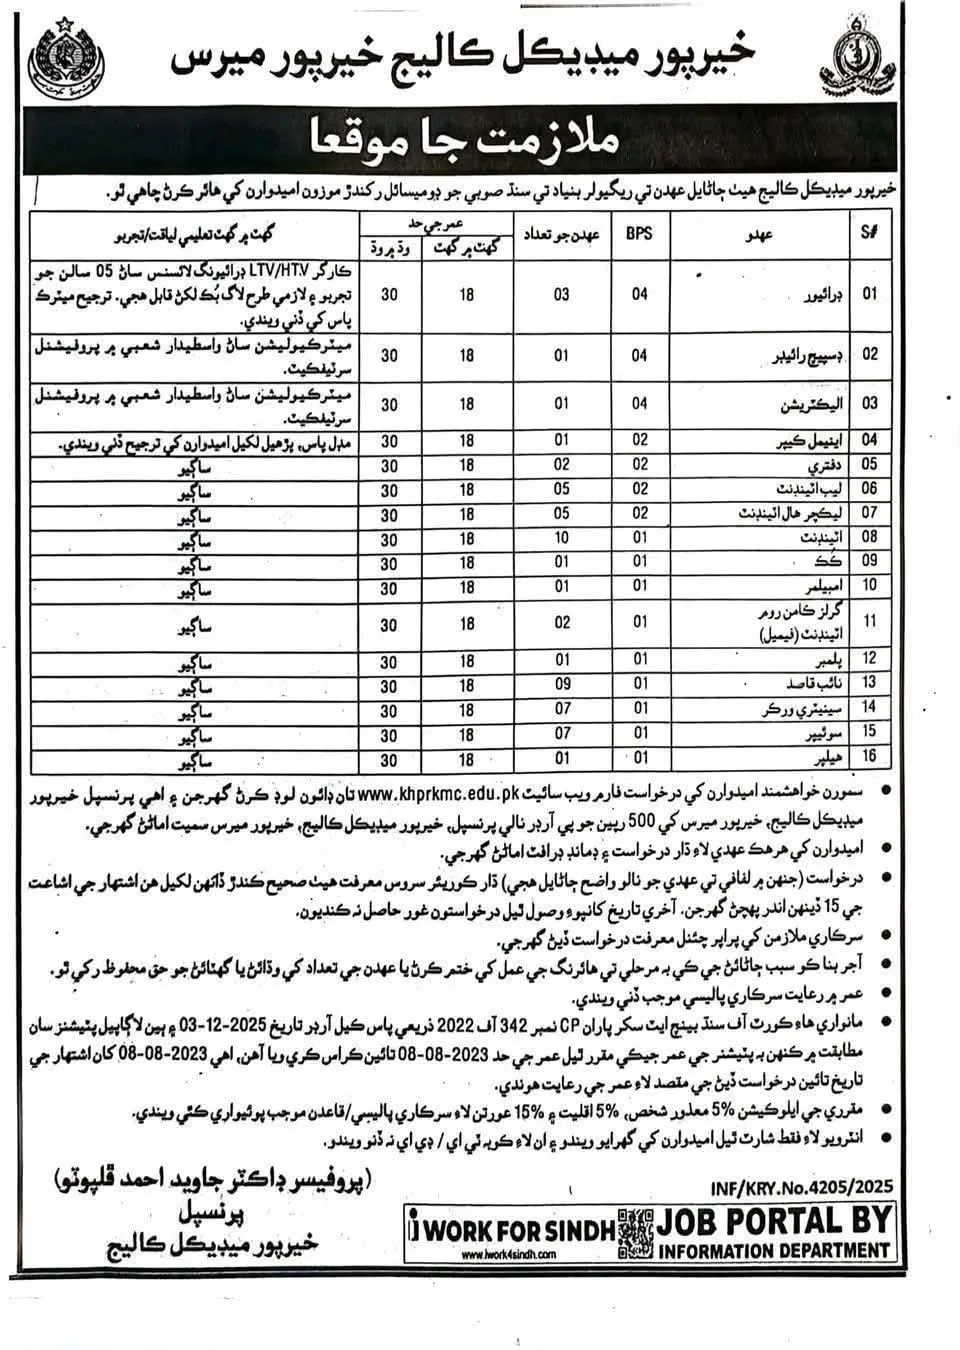 خيرپور ميڊيڪل ڪاليج خيرپور ميرس
ملازمت جا موقعا
خيرپور ميڊيڪل ڪاليج هيٺ ڄاڻايل عهدن تي ريگيولر بنياد تي سنڌ صوبي جو ڊوميسائل رکندڙ موزون اميدوارن کي هائر ڪرڻ چاهي ٿو.
S# عهدو BPS عهدن جو تعداد عمر جي حد گهٽ ۾ گهٽ تعليمي لياقت/تجربو
گهٽ ۾ گهٽ وڌ ۾ وڌ
01 ڊرائيور 04 03 18 30 ڪارگر LTV/HTV ڊرائيونگ لائسنس ساڻ 05 سالن جو
تجربو ۽ لازمي طرح لاگ بُڪ لکڻ قابل هجي. ترجيح ميٽرڪ
پاس کي ڏني ويندي.
02 ڊسپيچ رائيڊر 04 01 18 30 ميٽرڪيوليشن ساڻ واسطيدار شعبي ۾ پروفيشنل
سرٽيفڪيٽ.
03 اليڪٽريشن 04 01 18 30 ميٽرڪيوليشن ساڻ واسطيدار شعبي ۾ پروفيشنل
سرٽيفڪيٽ.
04 اينيمل ڪيپر 02 01 18 30 مڊل پاس، پڙهيل لکيل اميدوارن کي ترجيح ڏني ويندي.
05 دفتري 02 02 18 30 ساڳيو
06 ليب اٽينڊنٽ 02 05 18 30 ساڳيو
07 ليڪچر هال اٽينڊنٽ 02 05 18 30 ساڳيو
08 اٽينڊنٽ 01 10 18 30 ساڳيو
09 ڪُڪ 01 01 18 30 ساڳيو
10 امبيلمر 01 01 18 30 ساڳيو
11 گرلز ڪامن روم
اٽينڊنٽ (فيميل) 01 02 18 30 ساڳيو
12 پلمبر 01 01 18 30 ساڳيو
13 نائب قاصد 01 09 18 30 ساڳيو
14 سينيٽري ورڪر 01 07 18 30 ساڳيو
15 سوئيپر 01 07 18 30 ساڳيو
16 هيلپر 01 01 18 30 ساڳيو
• سمورن خواهشمند اميدوارن کي درخواست فارم ويب سائيٽ www.khprkmc.edu.pk تان ڊائون لوڊ ڪرڻ گهرجن ۽ اهي پرنسپل خيرپور
ميڊيڪل ڪاليج، خيرپور ميرس کي 500 رپين جو پي آرڊر نالي پرنسپل، خيرپور ميڊيڪل ڪاليج، خيرپور ميرس سميت اماڻڻ گهرجي.
• اميدوارن کي هرهڪ عهدي لاءِ ڌار درخواست ۽ ڊمانڊ ڊرافٽ اماڻڻ گهرجي.
• درخواست (جنهن ۾ لفافي تي عهدي جو نالو واضح ڄاڻايل هجي) ڌار ڪوريئر سروس معرفت هيٺ صحيح ڪندڙ ڏانهن لکيل هن اشتهار جي اشاعت
جي 15 ڏينهن اندر پهچڻ گهرجن. آخري تاريخ کانپوءِ وصول ٿيل درخواستون غور حاصل نه ڪنديون.
• سرڪاري ملازمن کي پراپر چئنل معرفت درخواست ڏيڻ گهرجي.
• آجر بنا ڪو سبب ڄاڻائڻ جي ڪي به مرحلي تي هائرنگ جي عمل کي ختم ڪرڻ يا عهدن جي تعداد کي وڌائڻ يا گهٽائڻ جو حق محفوظ رکي ٿو.
• عمر ۾ رعايت سرڪاري پاليسي موجب ڏني ويندي.
• مانواري هاءِ ڪورٽ آف سنڌ بينچ ايٽ سکر پاران CP نمبر 342 آف 2022 ذريعي پاس ڪيل آرڊر تاريخ 2025-12-03 ۽ ٻين لاڳاپيل پٽيشنز سان
مطابقت ۾ ڪنهن به پٽيشنر جي عمر جيڪي مقرر ٿيل عمر جي حد 2023-08-08 تائين ڪراس ڪري ويا آهن، اهي 2023-08-08 کان اشتهار جي
تاريخ تائين درخواست ڏيڻ جي مقصد لاءِ عمر جي رعايت هوندي.
• مقرري جي ايلوڪيشن 5% معذور شخص، 5% اقليت ۽ 15% عورتن لاءِ سرڪاري پاليسي/قاعدن موجب پوئيواري ڪئي ويندي.
• انٽرويو لاءِ فقط شارٽ ٿيل اميدوارن کي گهرايو ويندو ۽ ان لاءِ ڪو به ٽي اي / ڊي اي نه ڏنو ويندو.
(پروفيسر ڊاڪٽر جاويد احمد ڦلپوٽو)
پرنسپل
خيرپور ميڊيڪل ڪاليج
INF/KRY.No.4205/2025
i WORK FOR SINDH
www.iwork4sindh.com
JOB PORTAL BY
INFORMATION DEPARTMENT